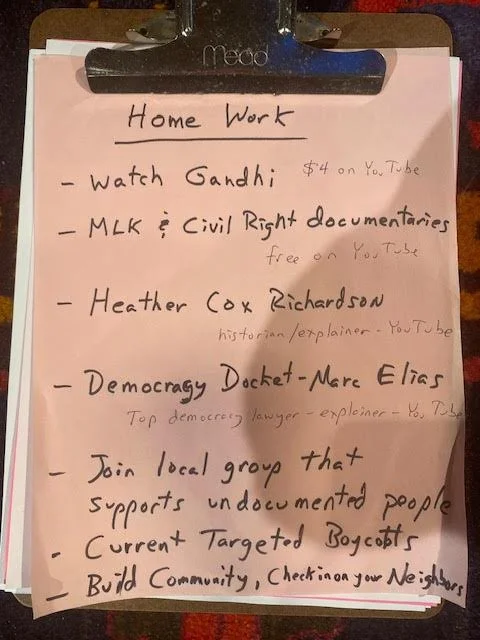 Mead
Home Work
- Watch Gandhi $4 on YouTube
- MLK & Civil Right documentaries
free on YouTube
- Heather Cox Richardson
historian/explainer - YouTube
- Democragy Docket - Marc Elias
Top democracy lawyer - explainer - YouTube
- Join local group that
supports undocumented people
- Current Targeted Boycotts
- Build Community, Check in on your Neighbors